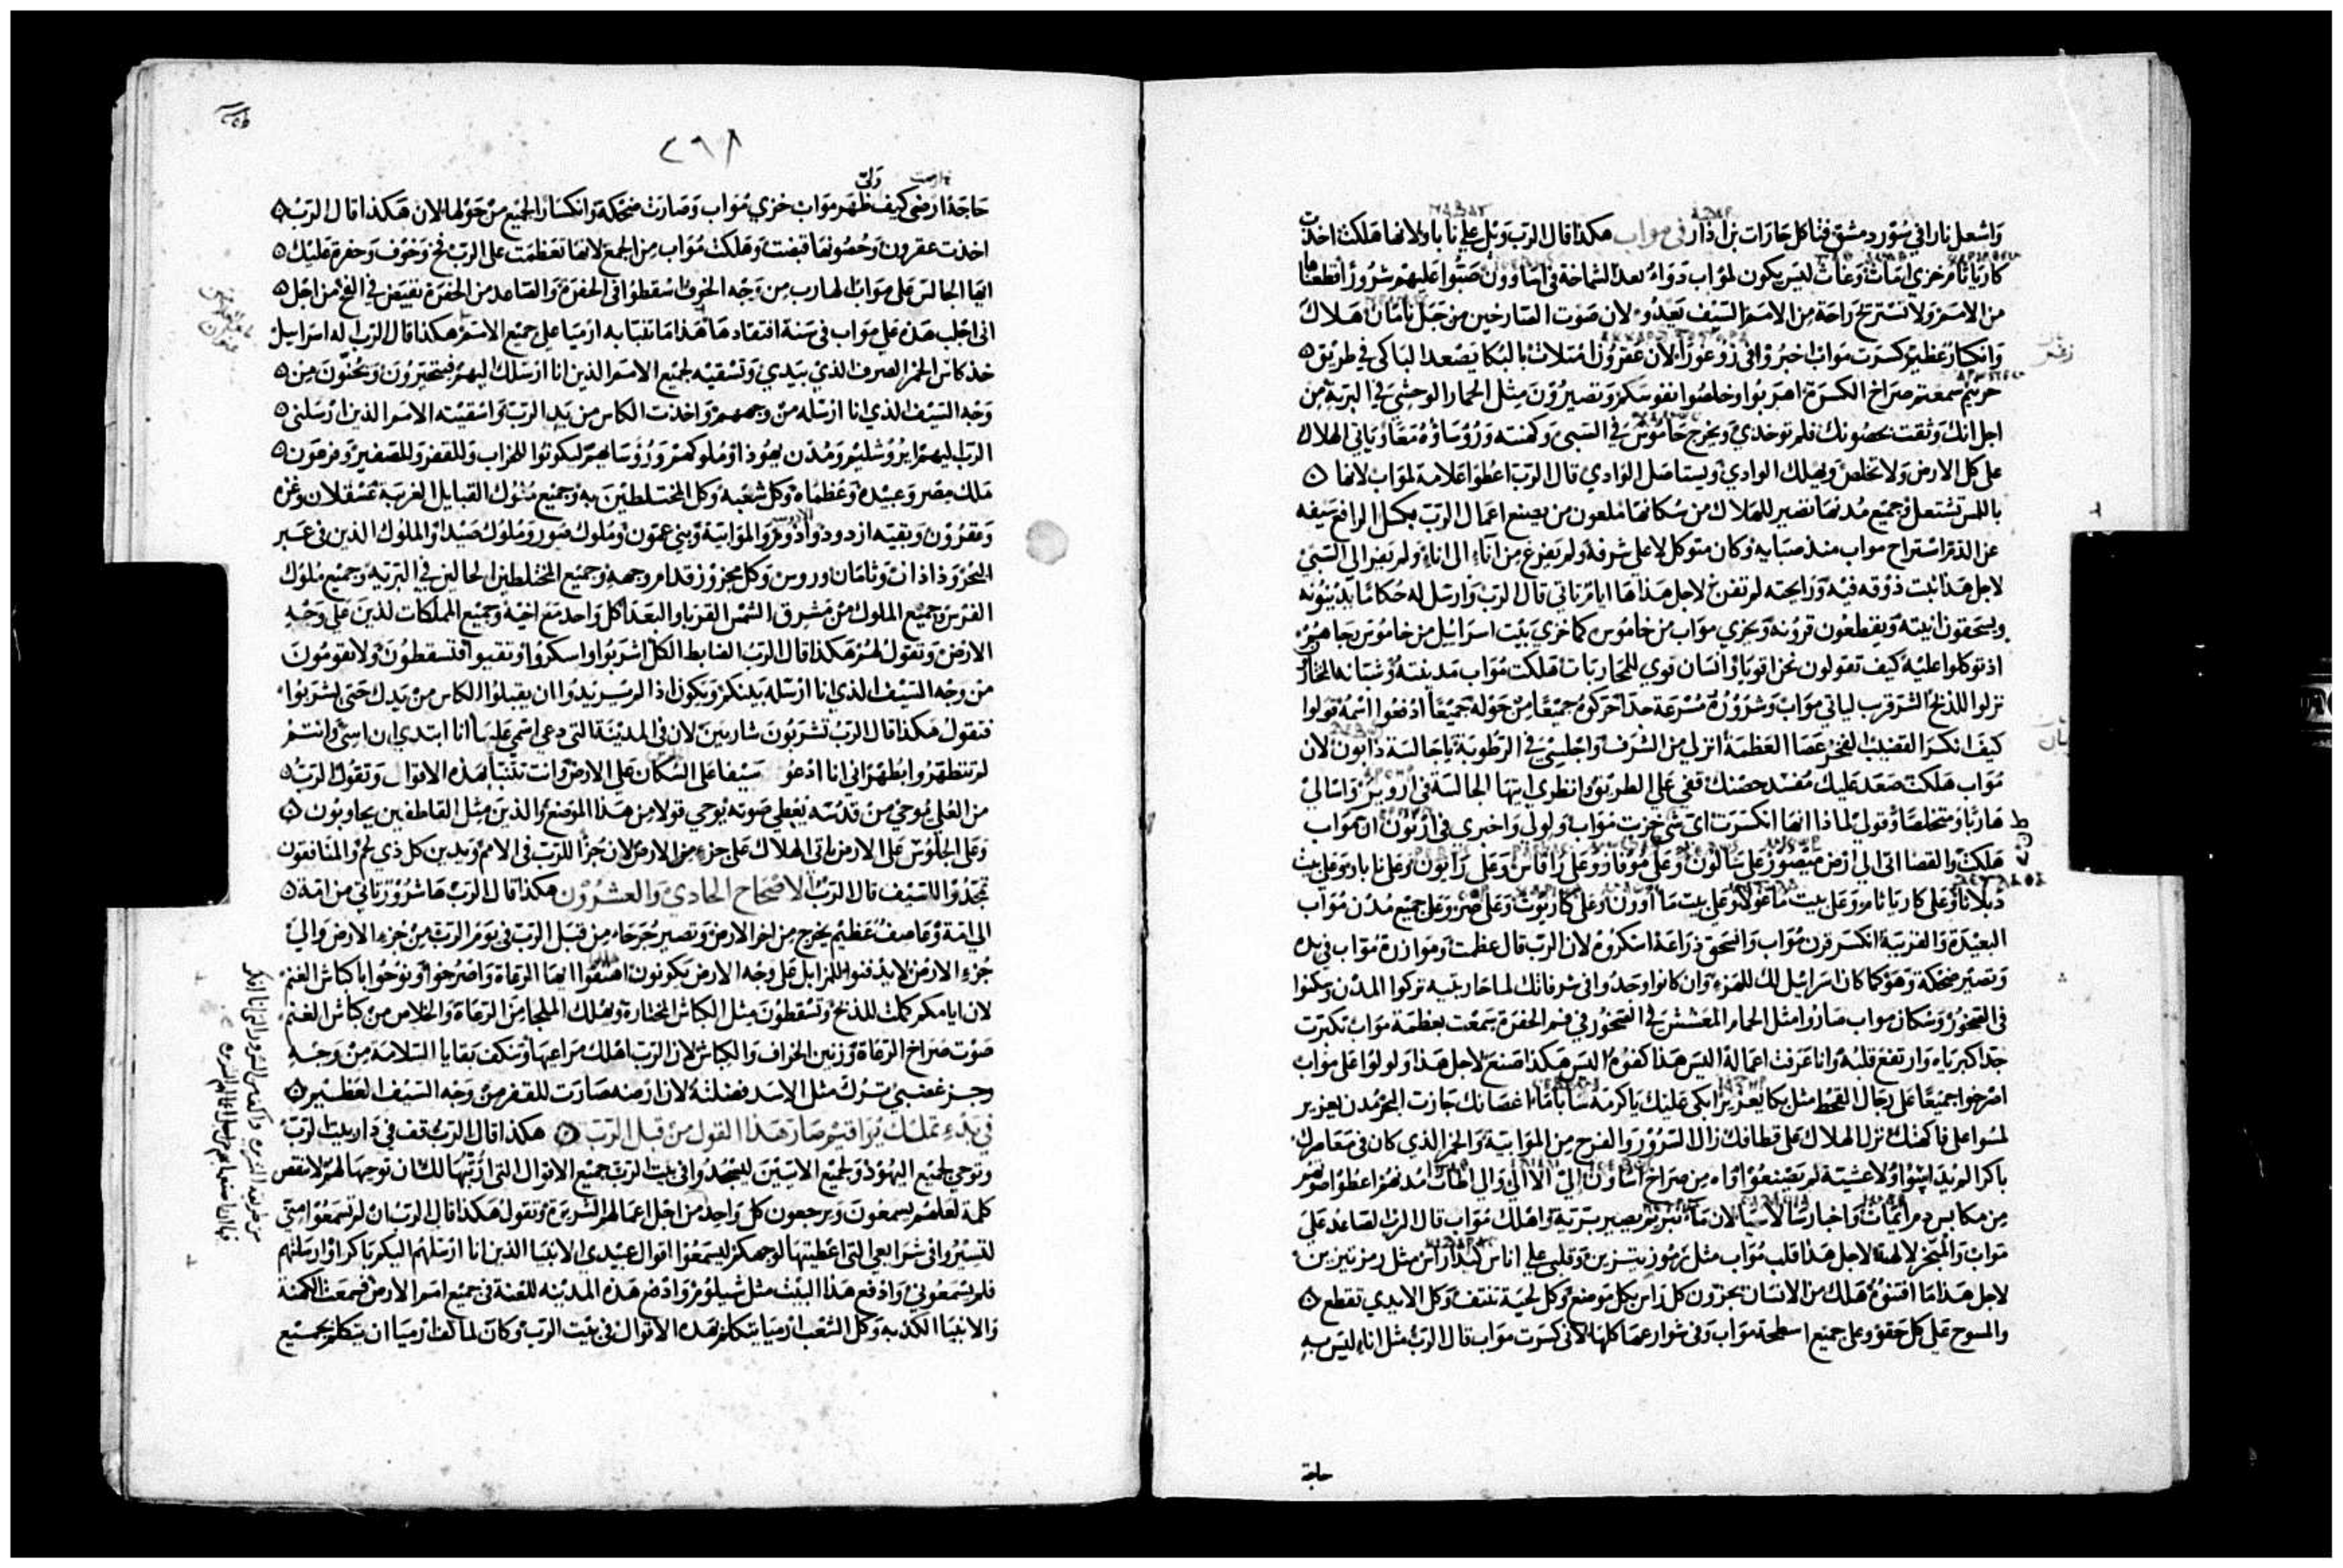 واشعل نارا في سور دمشق فتاكل حارات بن اذار في مواب هكذا قال الرب ويل علي ناباو لانها هلكت اخذت
كارياثام خزي اماث وعاث ليس يكون لمواب دوا بعد الشماخة في اساوون صبوا عليهم شرورا اقطعناها
من الامم ولا تستريح راحة من الامم السيف يعدو لان صوت الصارخين من جبل نامان هلاك
وانكسار عظيم كسرت مواب اخبروا في زوغورا لان عفرون امتلات بالبكا يصعد الباكي في طريق
حرنيم سمعتم صراخ الكسرة اهربوا وخلصوا نفوسكم وتصيرون مثل الحمار الوحشي في البرية من
اجل انك وثقت بحصونك فلم توخذي ويخرج خاموس في السبي وكهنته وروساؤه معا وياتي الهلاك
على كل الارض ولا تخلص ويهلك الوادي ويستاصل الوادي قال الرب اعطوا علامة لمواب لانها
باللمس تشتعل وجميع مدنها تصير للهلاك من سكانها ملعون من يصنع اعمال الرب بكسل الرافع سيفه
عن الدم استراح مواب منذ صبايه وكان متوكلا على شرفه ولم يفرغ من اناء الى اناء ولم يمر الى السبي
لاجل هذا ثبت ذوقه فيه ورايحته لم تفن لاجل هذا ها ايام تاتي قال الرب وارسل له حكاما يدينونه
ويسحقون انيته ويقطعون قرونه ويخزي مواب من خاموس كما خزي بيت اسراييل من
اذ توكلوا عليه كيف تقولون نحن اقويا وانسان قوي للمحاربات هلكت مواب مدينته وشبانه المختار
نزلوا للذبح الشر قرب لياتي مواب وشروره مسرعة جدا حركوه جميعا من حوله جميعا ادفعوا اسمه قولوا
كيف انكسر القضيب لفخر عصا العظمة انزلي من الشرف واجلسي في الرطوبة يا جالسة ذابون لان
مواب هلكت صعد عليك مفسد حصنك قفي علي الطريق وانظري ايتها الجالسة في اروير واسالي
هاربا ومتخلصا وقولي لماذا انها انكسرت اي شي خزيت مواب ولولي واخبري في ارنون ان مواب
هلكت والقضا اتى الي ارض ميصور على سالون وعلى موفاز وعلى رافاس وعلى رابون وعلى ناباو وعلى بيث
دبلاثا وعلى كارياثام وعلى بيت ماغولا وعلى بيت ما اوون وعلى كاريوث وعلى صر وعلى جميع مدن مواب
البعيدة والقريبة انكسر قرن مواب وانسحق ذراعه اسكروه لان الرب قال عظمت وموازرة مواب في يده
وتصير ضحكة وهو كما كان اسراييل لك للهزء وان كانوا وجدوا في سرقاتك لما حاربتيه تركوا المدن وسكنوا
في الصخور وسكان مواب صاروا مثل الحمام المعشش في الصخور في فم الحفرة سمعت بعظمة مواب تكبرت
جدا كبرياه وارتفع قلبه وانا عرفت اعماله اليس هذا كفوه اليس هكذا اصنع لاجل هذا ولولوا على مواب
اصرخوا جميعا على رجال القحط مثل بكا يعزير ابكي عليك يا كرمة ساباما اغصانك جازت البحر مدن يعزير
لمسوا على فاكهتك نزل الهلاك على قطافك زال السرور والفرح من الموابية والخمر الذي كان في معاصرك
باكرا لم يداسوا ولا عشية لم يصنعوا اواه من صراخ اساون الى الاالي والى اطاث مدنهم اعطوا صوتهم
لاجل هذا قلب مواب مثل مزمور يتزين وقلبي علي اناس كيذاراس مثل رمز يتزين
لاجل هذا ما اقتنوه هلك من الانسان يجزون كل راس بكل موضع وكل لحية تنتف وكل الايدي تقطع
والمسوح على كل حقو وعلى جميع اسطحة مواب وفي شوارعها كلها لاني كسرت مواب قال الرب مثل اناء ليس به
حاجة
٢٩٨
حاجة ارضى كيف ظهر مواب خزي مواب وصارت ضحكة وانكسار الجميع من حولها لان هكذا قال الرب
اخذت عقرون وحصونها قبضت وهلكت مواب من الجمع لانها تعظمت على الرب فخ وخوف وحفرة عليك
ايها الجالس على مواب الهارب من وجه الخوف اسقطوا في الحفرة والصاعد من الحفرة يقبض في الفخ من اجل
اني اجلب هذه على مواب في سنة افتقادها هذا ما تنبا به ارميا على جميع الامم هكذا قال الرب اله اسراييل
خذ كاس الخمر الصرف الذي بيدي وتسقيه لجميع الامم الذين انا ارسلك اليهم فيتحيرون ويجنون من
وجه السيف الذي انا ارسله من وجههم واخذت الكاس من يد الرب واسقيته الامم الذين ارسلني
الرب اليهم ايروشليم ومدن يهوذا وملوكهم وروساهم ليكونوا للخراب وللقفر وللصفير وفرعون
ملك مصر وعبيده وعظماه وكل شعبه وكل المختلطين به وجميع ملوك القبايل الغريبة عسقلان وغزه
وعقرون وبقية ازدود وادوم والموابية وبني عمون وملوك صور وملوك صيدا والملوك الذين في عبر
البحر وذاذان وثامان وروس وكل مجزوز قدام وجهه وجميع المختلطين الحالين في البرية وجميع ملوك
الفرس وجميع الملوك من مشرق الشمس القربا والبعدا كل واحد مع اخيه وجميع المملكات الذين على وجه
الارض وتقول لهم هكذا قال الرب الضابط الكل اشربوا واسكروا وتقيوا فتسقطون ولا تقومون
من وجه السيف الذي انا ارسله بينكم ويكون اذا لم يريدوا ان يقبلوا الكاس من يدك حتى يشربوا
فتقول هكذا قال الرب تشربون شاربين لان في المدينة التي دعي اسمي عليها انا ابتدي ان اسي وانتم
لم تتطهروا بطهر اني انا ادعو سيفا على السكان على الارض وانت تتنبا بهذه الاقوال وتقول الرب
من العلي يوحي من قدسه يعطي صوته يوحي قولا من هذا الموضع والذين مثل القاطفين يجاوبون
وعلى الجلوس على الارض ياتي الهلاك على جزء من الارض لان جزا للرب في الامم ويدين كل ذي لحم والمنافقون
تجندوا للسيف قال الرب الاصحاح الحادي والعشرون هكذا قال الرب ها شرور تاتي من امة
الي امة وعاصف عظيم يخرج من اخر الارض وتصير جرحاء من قبل الرب في يوم الرب من جزء الارض والي
جزء الارض لا يدفنوا للمزابل على وجه الارض يكونون اهتفوا ايها الرعاة واصرخوا ونوحوا يا كباش الغنم
لان ايامكم كملت للذبح وتسقطون مثل الكباش المختارة ويهلك الملجا من الرعاة والخلاص من كباش الغنم
صوت صراخ الرعاة وزنين الخراف والكباش لان الرب اهلك مراعيها وسكف بقايا السلامة من وجه
وجز غضبي ترك مثل الاسد فضلته لان ارضه صارت للقفر من وجه السيف العظيم
في بدء تملك يواقيم صار هذا القول من قبل الرب هكذا قال الرب قف في دار بيت الرب
وتوحي لجميع اليهود ولجميع الاتيين ليسجدوا في بيت الرب جميع الاقوال التي اُرتبها لك ان توحيها لهم لا تنقص
كلمة لعلهم يسمعون ويرجعون كل واحد من اجل اعمالهم الشريرة وتقول هكذا قال الرب ان لم تسمعوا مني
لتسيروا في شرايعي التي اعطيتها لوجهكم ليسمعوا اقوال عبيدي الانبيا الذين انا ارسلهم اليكم باكرا وارسلتهم
فلم يسمعوني وادفع هذا البيت مثل شيلوم وادفع هذه المدينه للعنة في جميع امم الارض فسمعت الكهنة
والانبيا الكذبه وكل الشعب ارميا يتكلم بهذه الاقوال في بيت الرب وكان لما كف ارميا ان يتكلم بجميع